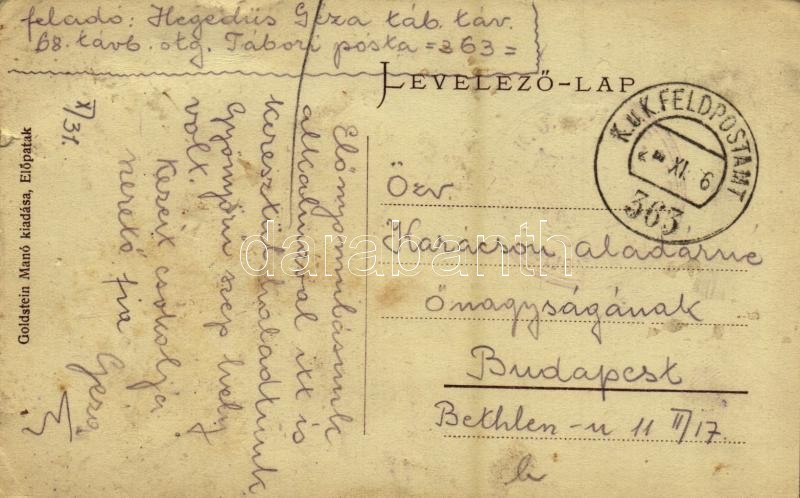 feladó: Hegedüs Géza táb. táv.
68. távb. otg. Tábori posta =363=
LEVELEZŐ-LAP
K.u.K. FELDPOSTAMT
XI. 6
363
Özv.
Karácson aladárné
önagyságának
Budapest
Bethlen-u 11 II/17.
Előnyomulásunk
alkalmával itt is
keresztül haladtunk.
Gyönyörü szép hely
volt.
Kezeit csókolja
szerető fia
Géza
X/31.
Goldstein Manó kiadása, Előpatak
darabanth